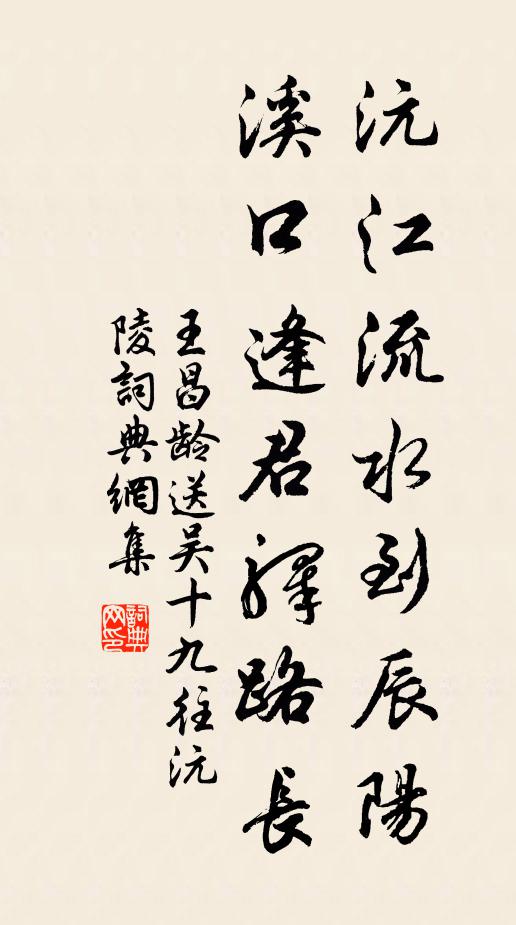 沅江流水到辰陽
溪口逢君驛路長
王昌龄送吴十九往沅
陵詞典網集
詞典
网印